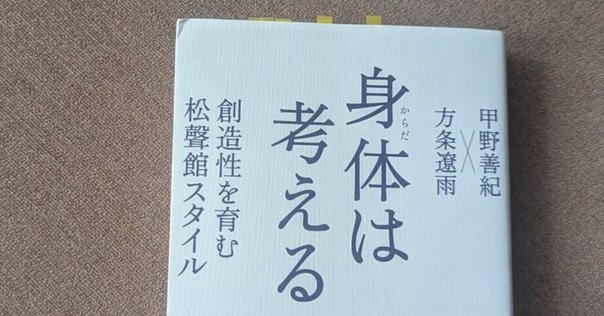 甲野善紀
×
方条遼雨
身体は
からだ
考える
創造性を育む
松聲館スタイル